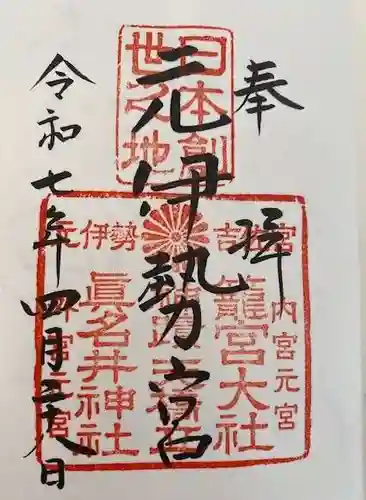 奉拝
元伊勢宮
令和七年四月二十八日
日本創
世之地
吉佐宮
内宮元宮
籠宮大社
天橋立
元伊勢
眞名井神社
外宮元宮